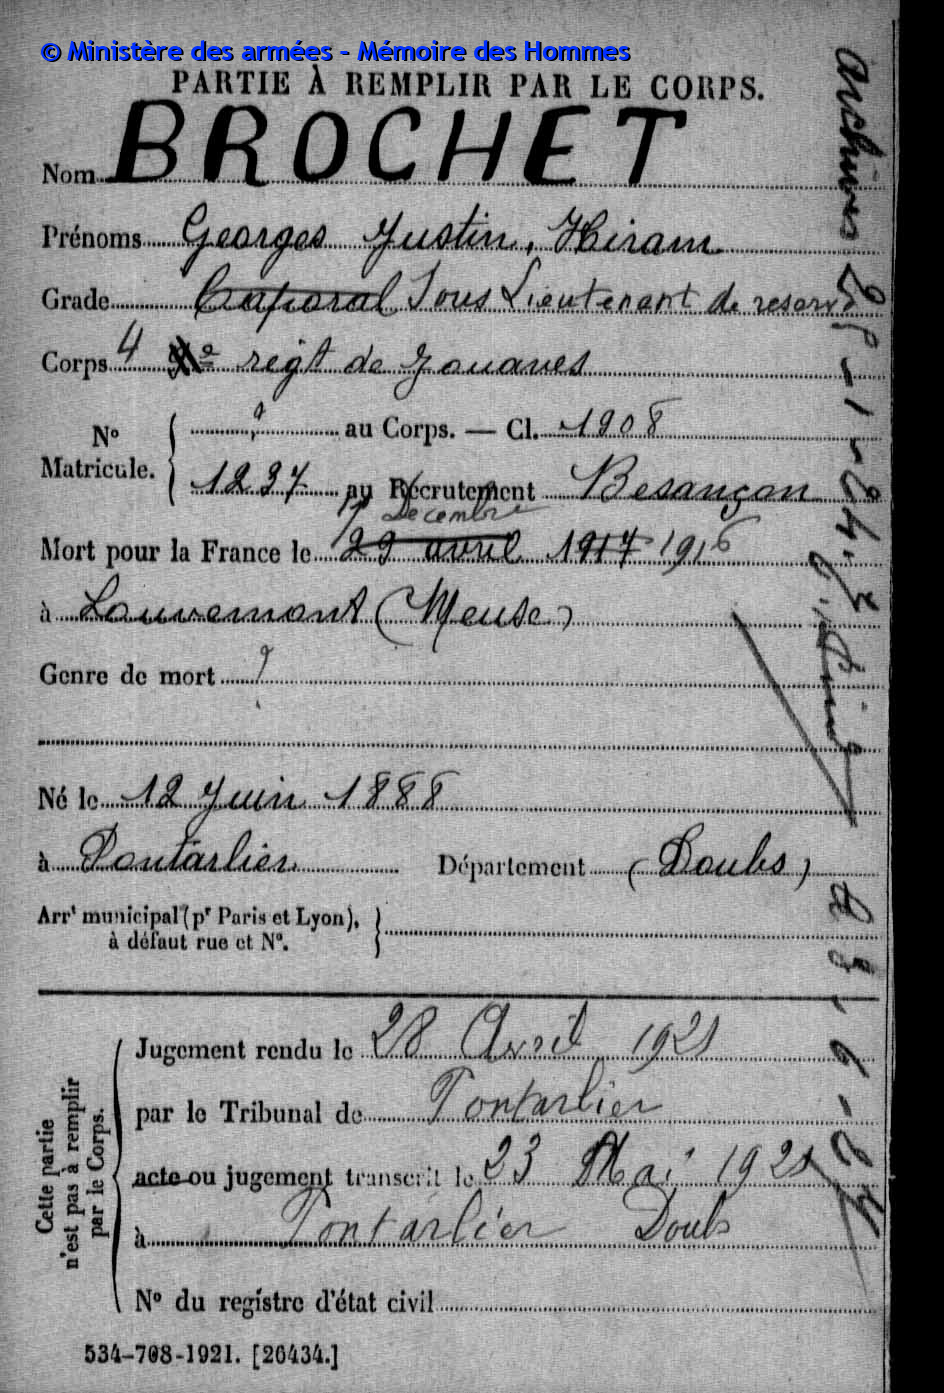 © Ministère des armées - Mémoire des Hommes
PARTIE À REMPLIR PAR LE CORPS.
Nom BROCHET
Prénoms Georges Justin, Hiram
Grade Caporal Sous Lieutenant de reserve
Corps 4 e régt de Zouaves
No ? au Corps. — Cl. 1908
Matricule. 1237 au Recrutement Besançon
Décembre
Mort pour la France le 29 avril 1917 1916
à Louvemont (Meuse)
Genre de mort ?
Né le 12 Juin 1888
à Pontarlier Département (Doubs)
Arrt municipal (pr Paris et Lyon),
à défaut rue et No.
Jugement rendu le 28 Avril 1921
par le Tribunal de Pontarlier
acte ou jugement transcrit le 23 Mai 1921
à Pontarlier Doubs
No du registre d'état civil
Cette partie
n'est pas à remplir
par le Corps.
534-708-1921. [26434.]
Archives